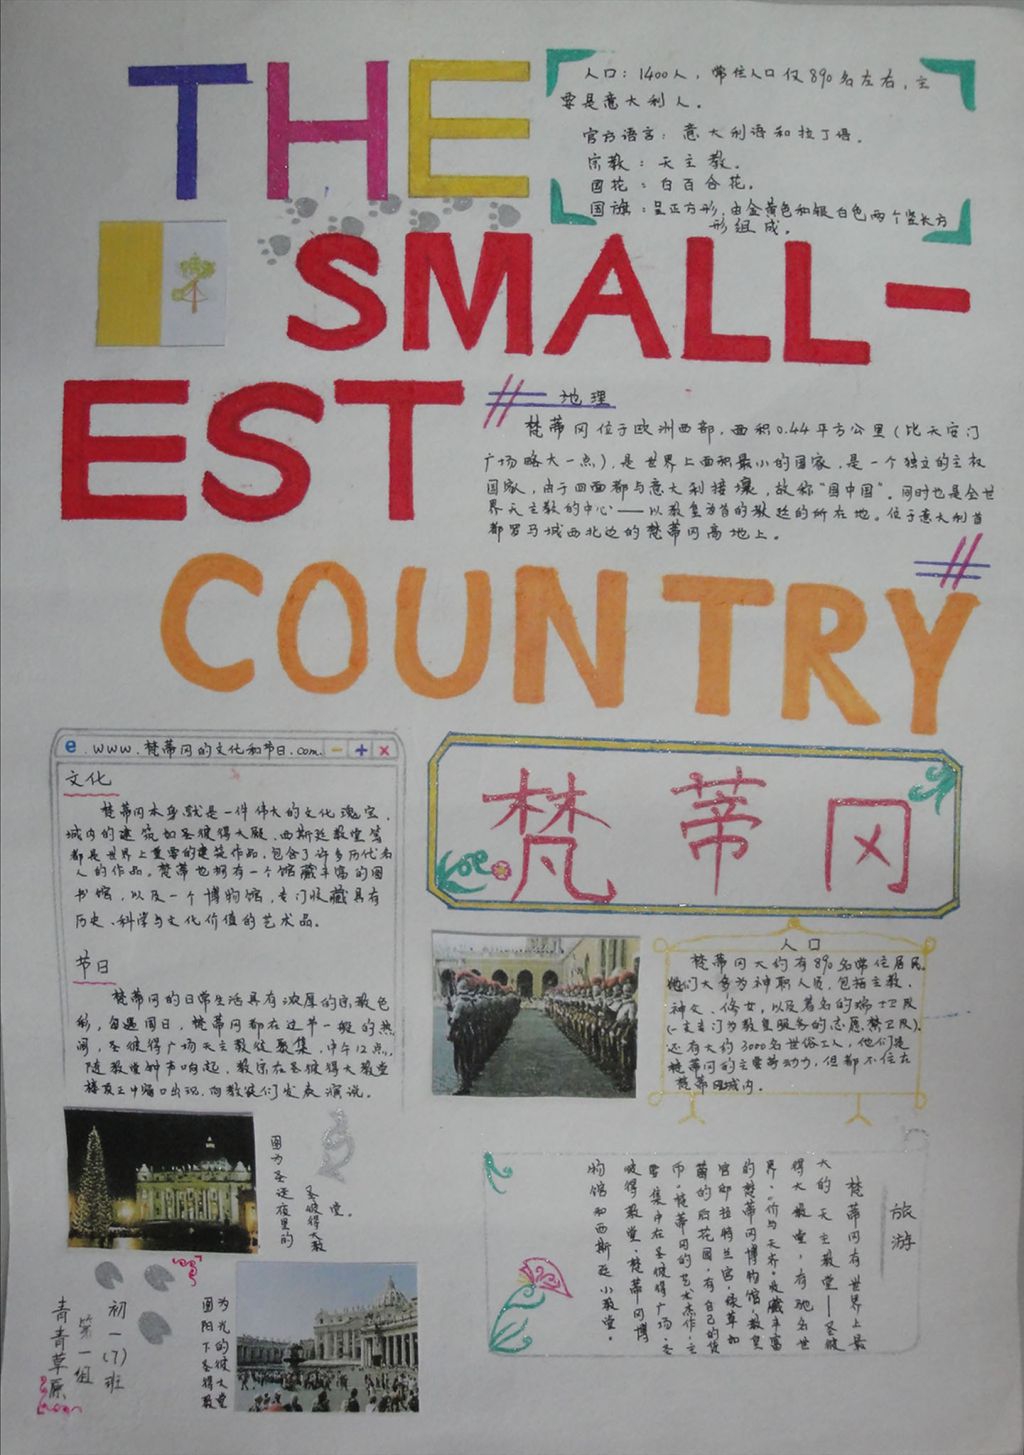 THE
人口：1400人，常住人口仅890名左右，主
要是意大利人。
官方语言：意大利语和拉丁语。
宗教：天主教。
国花：白百合花。
国旗：呈正方形，由金黄色和银白色两个竖长方
形组成。
SMALL-
EST
地理
梵蒂冈位于欧洲西部，面积0.44平方公里（比天安门
广场略大一点），是世界上面积最小的国家，是一个独立的主权
国家，由于四面都与意大利接壤，故称“国中国”。同时也是全世
界天主教的中心——以教皇为首的教廷的所在地。位于意大利首
都罗马城西北边的梵蒂冈高地上。
COUNTRY
e.www.梵蒂冈的文化和节日.com. - + ×
文化
梵蒂冈本身就是一件伟大的文化瑰宝，
城内的建筑如圣彼得大殿、西斯廷教堂等
都是世界上重要的建筑作品，包含了许多历代名
人的作品。梵蒂也拥有一个馆藏丰富的图
书馆，以及一个博物馆，专门收藏具有
历史、科学与文化价值的艺术品。
节日
梵蒂冈的日常生活具有浓厚的宗教色
彩，每逢周日，梵蒂冈都在过节一般的热
闹，圣彼得广场天主教徒聚集，中午12点，
随教堂钟声响起，教宗在圣彼得大教堂
楼顶正中窗口出现，向教徒们发表演说。
梵蒂冈
人口
梵蒂冈大约有890名常住居民，
他们大多为神职人员，包括主教、
神父、修女，以及著名的瑞士卫队
（一支专门为教皇服务的志愿禁卫队）。
还有大约3000名世俗工人，他们是
梵蒂冈的主要劳动力，但都不住在
梵蒂冈城内。
图为圣诞夜里的
圣彼得大教
堂。
旅游
梵蒂冈有世界上最
大的天主教堂——圣彼
得大教堂，有驰名世
界、价与天齐、收藏丰富
的梵蒂冈博物馆，教皇
宫邸拉特兰宫，绿草如
茵的后花园，有自己的货
币。梵蒂冈的艺术杰作，主
要集中在圣彼得广场、圣
彼得教堂、梵蒂冈博
物馆和西斯廷小教堂。
为光的彼大堂
图阳下圣得教
初一(7)班
第一组
青青草原